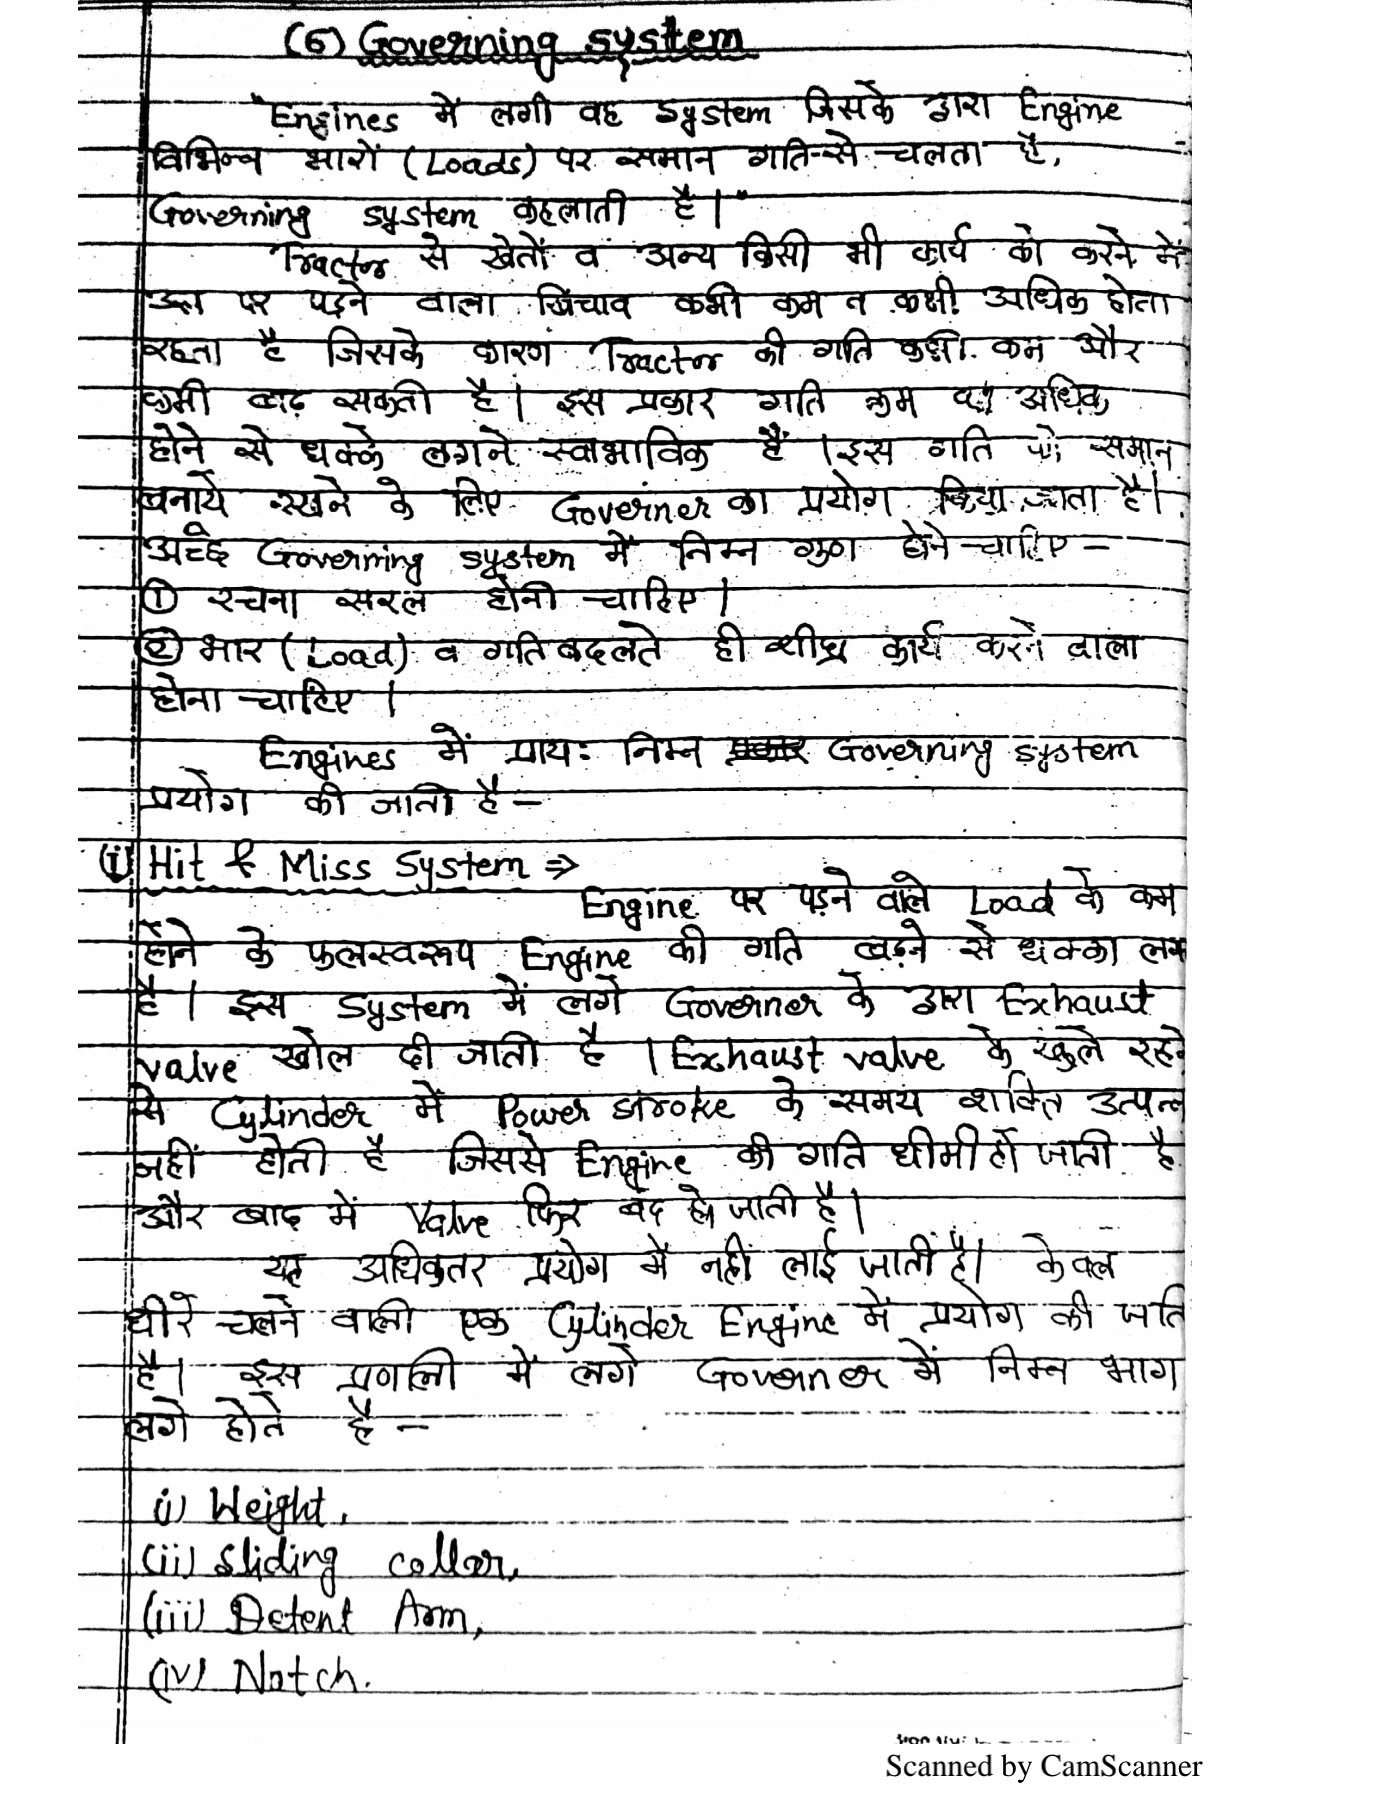 (6) Governing system
"Engines में लगी वह system जिसके द्वारा Engine
विभिन्न भारों (Loads) पर समान गति से चलता है,
Governing system कहलाती है।"
Tractor से खेतों व अन्य किसी भी कार्य को करने में
उस पर पड़ने वाला खिंचाव कभी कम व कभी अधिक होता
रहता है जिसके कारण Tractor की गति कभी कम और
कभी बढ़ सकती है। इस प्रकार गति कम वा अधिक
होने से धक्के लगने स्वाभाविक हैं। इस गति को समान
बनाये रखने के लिए Governer का प्रयोग किया जाता है।
अच्छे Governing system में निम्न गुण होने चाहिए –
① रचना सरल होनी चाहिए।
② भार (Load) व गति बदलते ही शीघ्र कार्य करने वाला
होना चाहिए।
Engines में प्राय: निम्न Governing system
प्रयोग की जाती है –
(i) Hit & Miss System ⇒
Engine पर पड़ने वाले Load के कम
होने के फलस्वरूप Engine की गति बढ़ने से धक्का
है। इस system में लगे Governer के द्वारा Exhaust
valve खोल दी जाती है। Exhaust valve के खुले रहने
से Cylinder में Power stroke के समय शक्ति उत्पन्न
नहीं होती है जिससे Engine की गति धीमी हो जाती है
और बाद में Valve फिर बंद हो जाती है।
यह अधिकतर प्रयोग में नहीं लाई जाती है। केवल
धीरे चलने वाली एक Cylinder Engine में प्रयोग की जाति
है। इस प्रणाली में लगे Governer में निम्न भाग
लगे होते है –
(i) Weight,
(ii) Sliding collar,
(iii) Detent Arm,
(iv) Notch.
Scanned by CamScanner